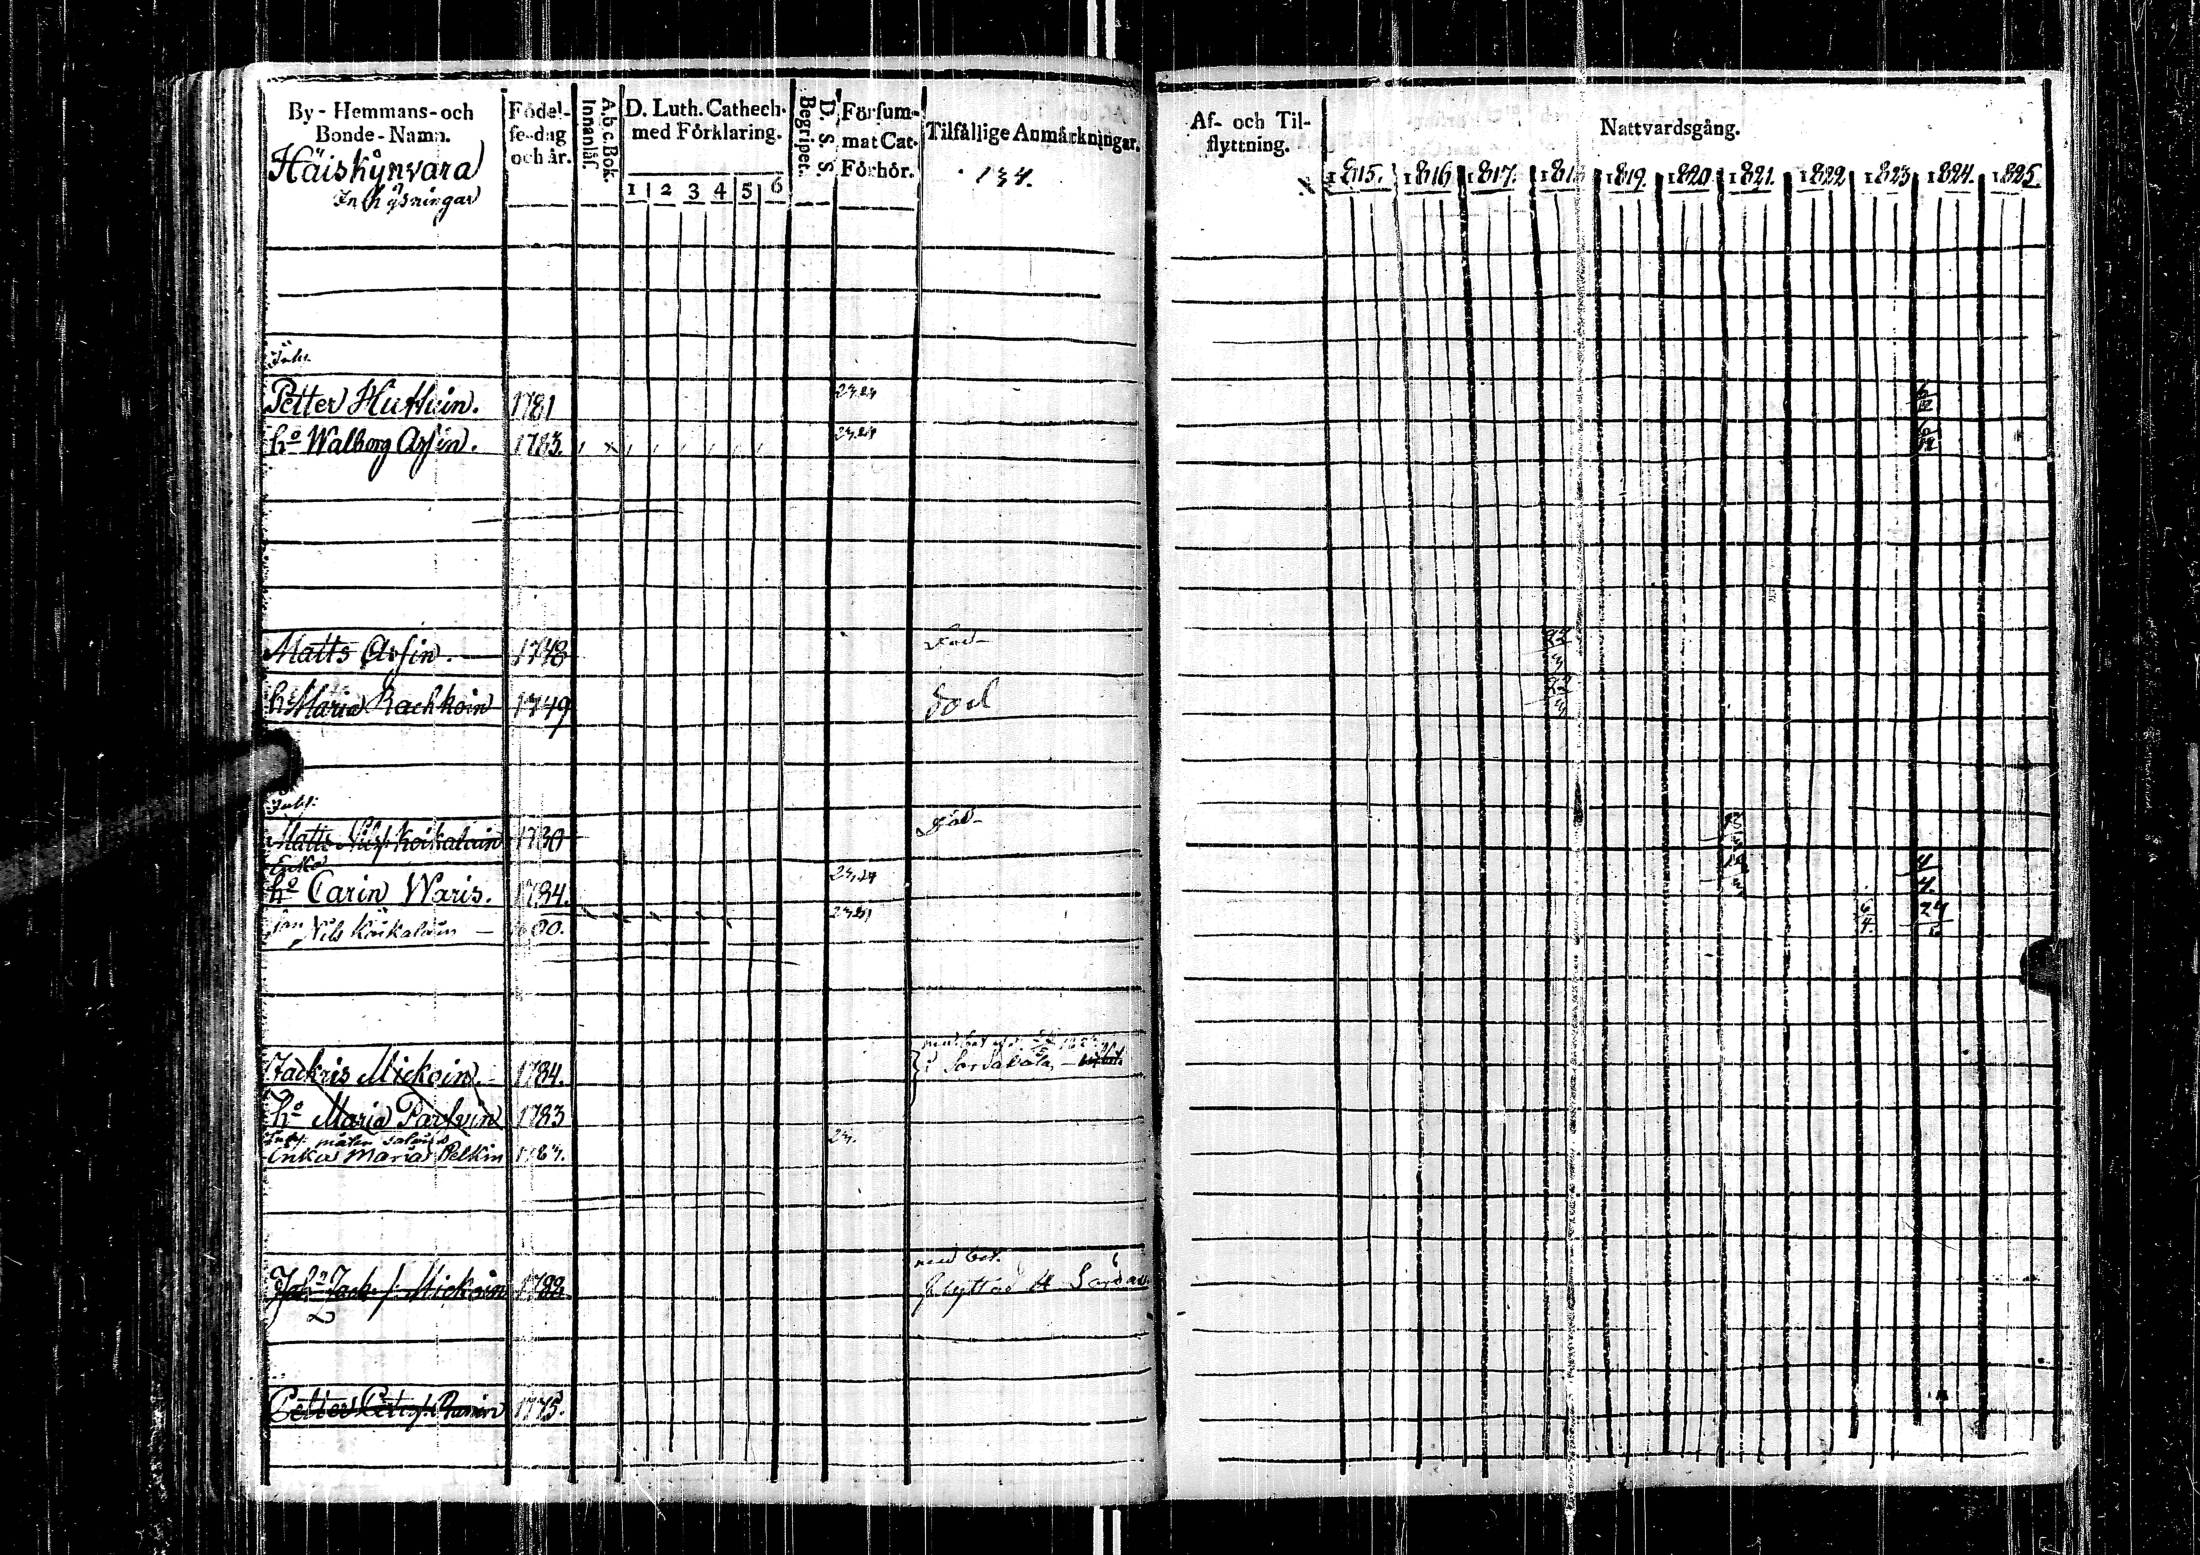 By - Hemmans- och
Bonde - Namn.
Häiskynvara
Inhysningar
Födel-
se-dag
och år.
A.b.c Bok.
Innanläs.
D. Luth. Cathech.
med Förklaring.
1 2 3 4 5 6
D. S. S.
Begripet.
Försum-
mat Cat.
Förhör.
Tilfällige Anmärkningar.
134.
Af- och Til-
flyttning.
Nattvardsgång.
1815. 1816 1817. 181 1819. 1820 1821. 1822 1823 1824. 1825.
Inh.
Petter Huttuin. 1781 23.24 6
h:o Walborg Assin. 1783. 23.24 6
Matts Assin. 1748 Död 22
3
h: Maria Rachkoin 1749 död 22
3
Inh:
Matts Nils: Koikalain 1780 Död
Enka
h:o Carin Waris. 1784. 23.24 4
4
son Nils Koikalain 1800. 23.24 6
4. 24
Zackris Mickoin. 1784. i Sordavala
h:o Maria Parkvin 1783
Inh:
Enka Maria Pelkin 23.
Joh:n Zach: Mickoin 1788 med bet.
flyttad t
Petter 1775.